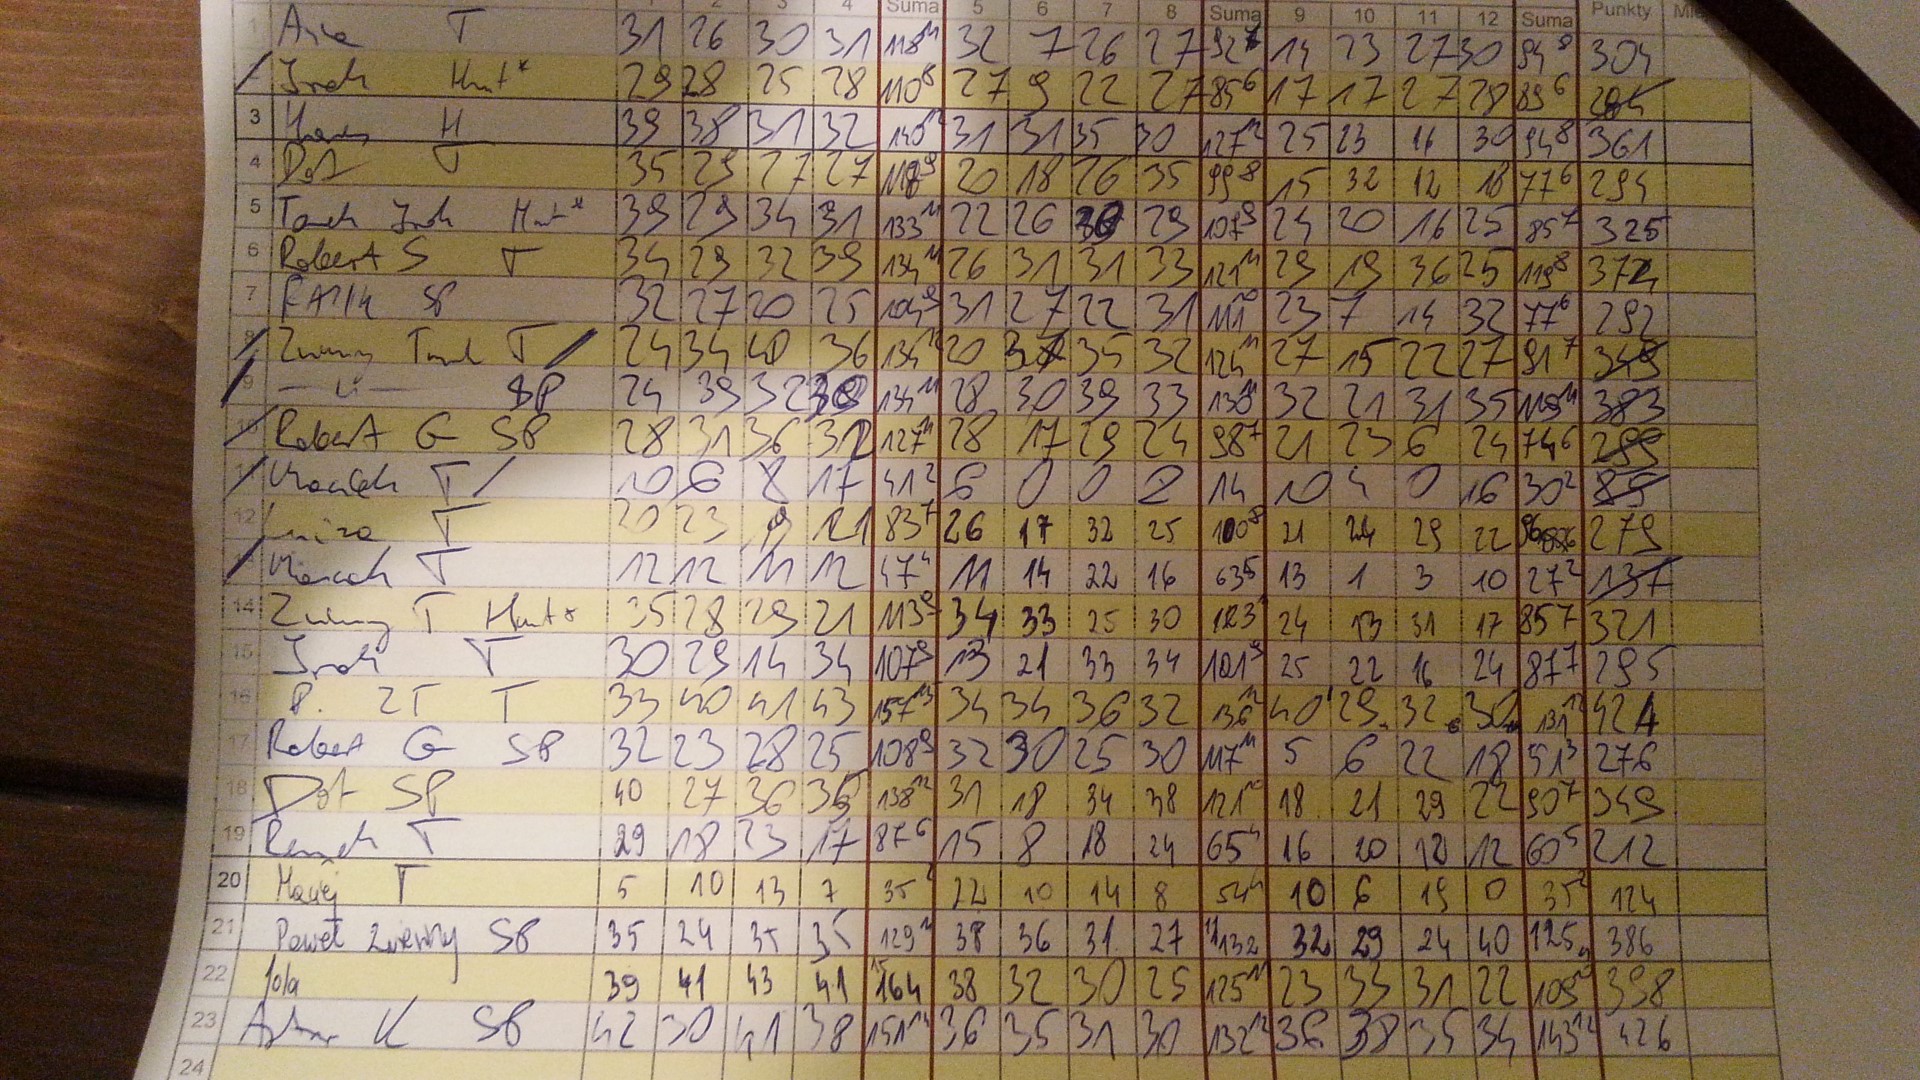 1 2 3 4 Suma 5 6 7 8 Suma 9 10 11 12 Suma Punkty
1 T 31 26 30 31 118 32 7 26 27 92 14 23 27 30 94 8 304
28 25 28 110 8 27 9 22 27 85 6 17 17 27 28 89 6
3 H 39 38 31 32 140 31 31 35 30 127 25 23 16 30 94 8 361
4 Dot T 35 29 27 27 20 18 26 35 99 8 15 32 12 18 77 6 294
5 39 29 34 31 133 22 26 29 107 9 24 20 16 25 85 7 325
6 Robert S T 34 29 32 39 134 26 31 31 33 121 29 19 36 25 119 8
7 SP 32 27 20 25 104 31 27 22 31 111 23 7 14 32 77 6 292
8 T 24 34 40 36 134 20 35 32 124 27 15 22 27 91 7
9 SP 24 39 32 134 28 30 39 33 130 32 21 31 35 383
Robert G SP 28 31 36 127 28 17 29 24 98 7 21 23 6 24 74 6
T 10 6 8 17 41 2 6 0 0 8 14 10 4 0 16 30 2 85
12 T 20 23 21 83 7 26 17 32 25 100 8 21 24 29 22 96 279
T 12 12 11 12 47 4 11 14 22 16 63 5 13 1 3 10 27 2 137
14 T 35 28 29 21 113 9 34 33 25 30 123 24 13 31 17 85 7 321
15 T 30 29 14 34 107 9 13 21 33 34 101 9 25 22 16 24 87 7 295
16 P. ZT T 33 40 41 43 157 13 34 34 36 32 136 40 29 32 30 131 424
17 Robert G SP 32 23 28 25 108 9 32 30 25 30 117 11 5 6 22 18 51 3 276
18 Dot SP 40 27 36 36 138 12 31 18 34 38 121 18 21 29 22 90 7 349
19 T 29 18 23 17 87 6 15 8 18 24 65 4 16 20 12 12 60 5 212
20 Maciej T 5 10 13 7 35 2 22 10 14 8 54 4 10 6 19 0 35 2 124
21 Paweł Zwierzny SP 35 24 35 35 129 38 36 31 27 11 132 32 29 24 40 125 386
22 Jola 39 41 43 41 15 164 38 32 30 25 125 11 23 33 31 22 109 398
23 K SP 42 30 41 38 151 14 36 35 31 30 132 12 36 38 35 34 143 12 426
24